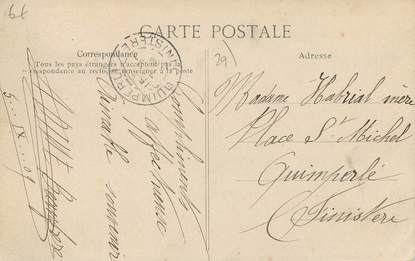 6f
CARTE POSTALE
Correspondance
Tous les pays étrangers n'acceptent pas la
correspondance au recto, se renseigner à la poste
Adresse
29)
QUIMPERLÉ
FINISTERE
Compliments
affectueux
Aimable souvenir
5 - IX - 09
Madame Habrial mère
Place St Michel
Quimperlé
Finistère